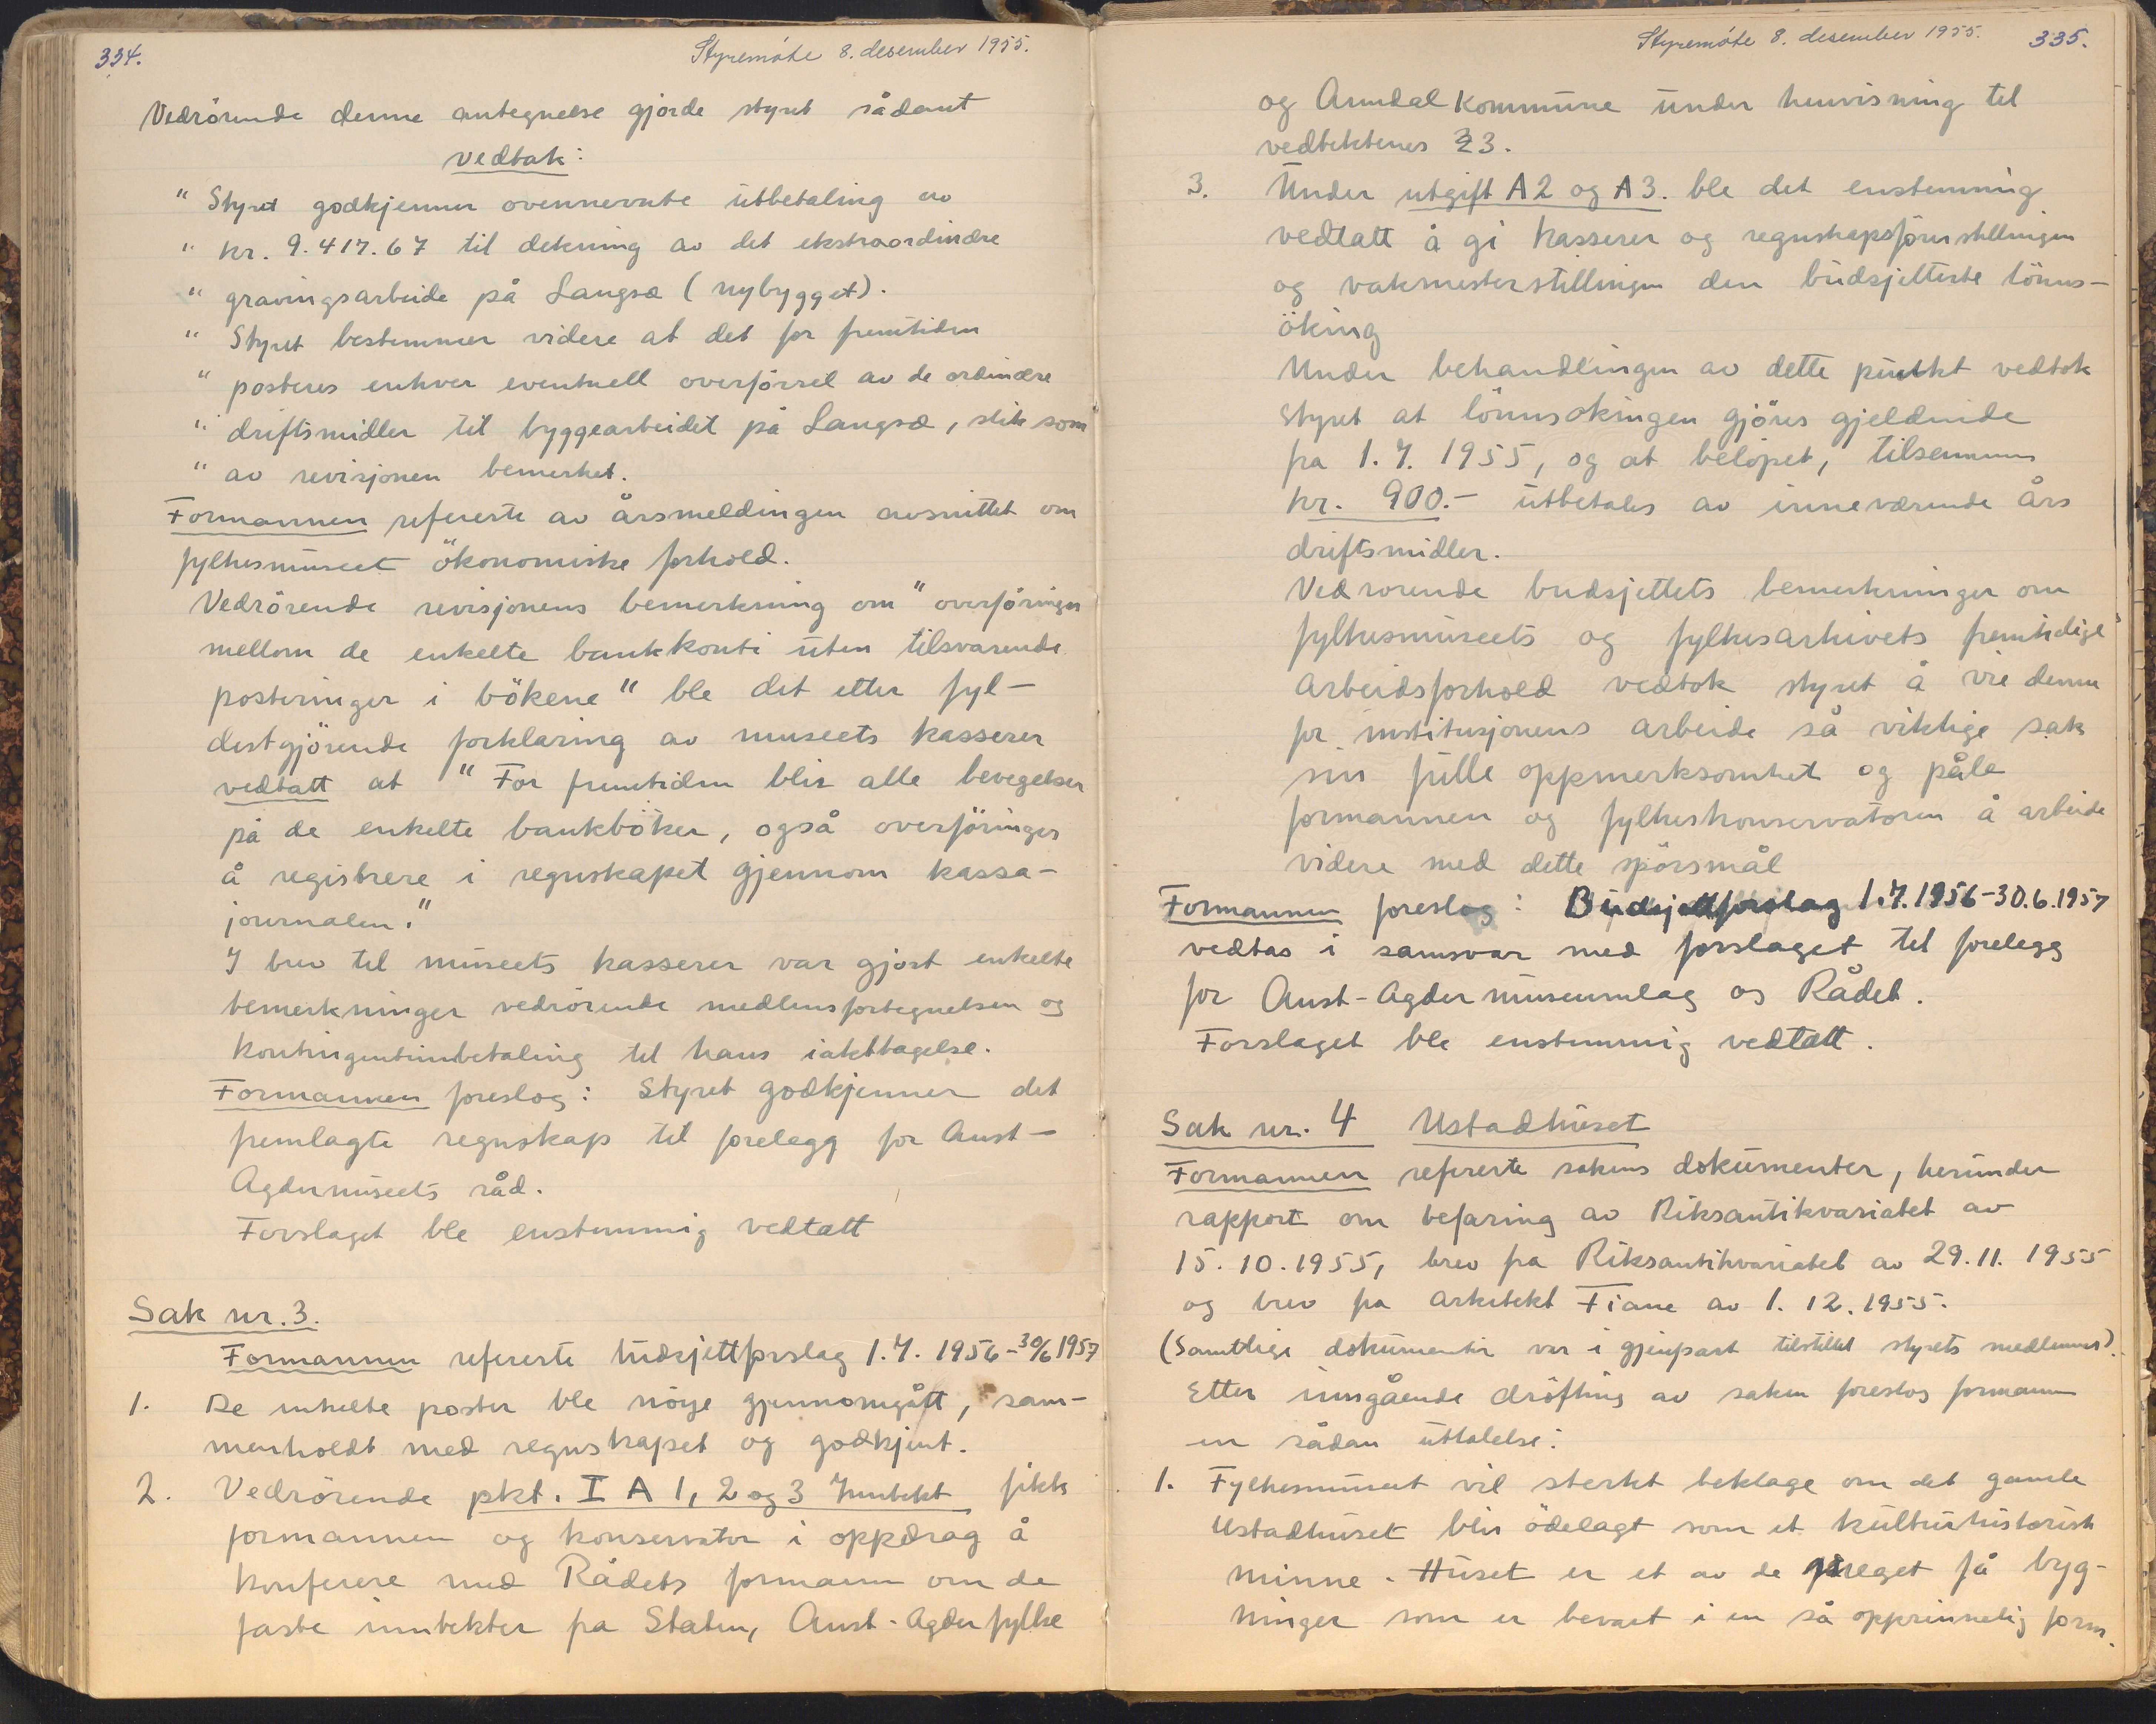 334.
Styremöte 8. desember 1955.
Vedrörende denne antegnelse gjorde styret sådant
vedtak:
" Styret godkjenner ovennevnte utbetaling av
" kr. 9.417.67 til dekning av det ekstraordinære
" gravingsarbeide på Langsæ (nybygget).
" Styret bestemmer videre at det for fremtiden
" posteres enhver eventuell overförsel av de ordinære
" driftsmidler til byggearbeidet på Langsæ, slik som
" av revisjonen bemerket.
Formannen refererte av årsmeldingen avsnittet om
fylkesmuseet ökonomiske forhold.
Vedrörende revisjonens bemerkning om "overföringer
mellom de enkelte bankkonti uten tilsvarende
posteringer i bökene" ble det etter fyl-
destgjörende forklaring av museets kasserer
vedtatt at "For fremtiden blir alle bevegelser
på de enkelte bankböker, også overföringer
å registrere i regnskapet gjennom kassa-
journalen."
I brev til museets kasserer var gjort enkelte
bemerkninger vedrörende medlemsfortegnelsen og
kontingentinnbetaling til hans iakttagelse.
Formannen foreslog: Styret godkjenner det
fremlagte regnskap til forelegg for Aust-
Agdermuseets råd.
Forslaget ble enstemmig vedtatt
Sak nr. 3.
Formannen refererte budsjettforslag 1.7. 1956-30/6 1957
1. De enkelte poster ble nöye gjennomgått, sam-
menholdt med regnskapet og godkjent.
2. Vedrörende pkt. I A 1, 2 og 3 Inntekt fikk
formannen og konservator i oppdrag å
konferere med Rådets formann om de
faste inntekter fra Staten, Aust-Agder fylke
Styremöte 8. desember 1955. 335.
og Arendal kommune under henvisning til
vedtektenes § 3.
3. Under utgift A2 og A3. ble det enstemmig
vedtatt å gi kasserer og regnskapsförerstillingen
og vaktmesterstillingen den budsjetterte lönns-
öking
Under behandlingen av dette punkt vedtok
styret at lönnsökingen gjöres gjeldende
fra 1.7. 1955, og at belöpet, tilsammen
kr. 900.- utbetales av inneværende års
driftsmidler.
Vedrörende budsjettets bemerkninger om
fylkesmuseets og fylkesarkivets fremtidige
arbeidsforhold vedtok styret å vie denne
for institusjonens arbeide så viktige sak
sin fulle oppmerksomhet og påla
formannen og fylkeskonservatoren å arbeide
videre med dette spörsmål
Formannen foreslog: Budsjettforslag 1.7.1956-30.6.1957
vedtas i samsvar med forslaget til forelegg
for Aust-Agder museumlag og Rådet.
Forslaget ble enstemmig vedtatt.
Sak nr. 4 Ustadhuset
Formannen refererte sakens dokumenter, herunder
rapport om befaring av Riksantikvariatet av
15.10.1955, brev fra Riksantikvariatet av 29.11. 1955
og brev fra arkitekt Fiane av 1. 12. 1955.
(Samtlige dokumenter var i gjenpart tilstillet styrets medlemmer).
Etter inngående dröfting av saken foreslog formannen
en sådan uttalelse:
1. Fylkesmuseet vil sterkt beklage om det gamle
Ustadhuset blir ödelagt som et kulturhistorisk
minne. Huset er et av de meget få byg-
ninger som er bevart i en så opprinnelig form.